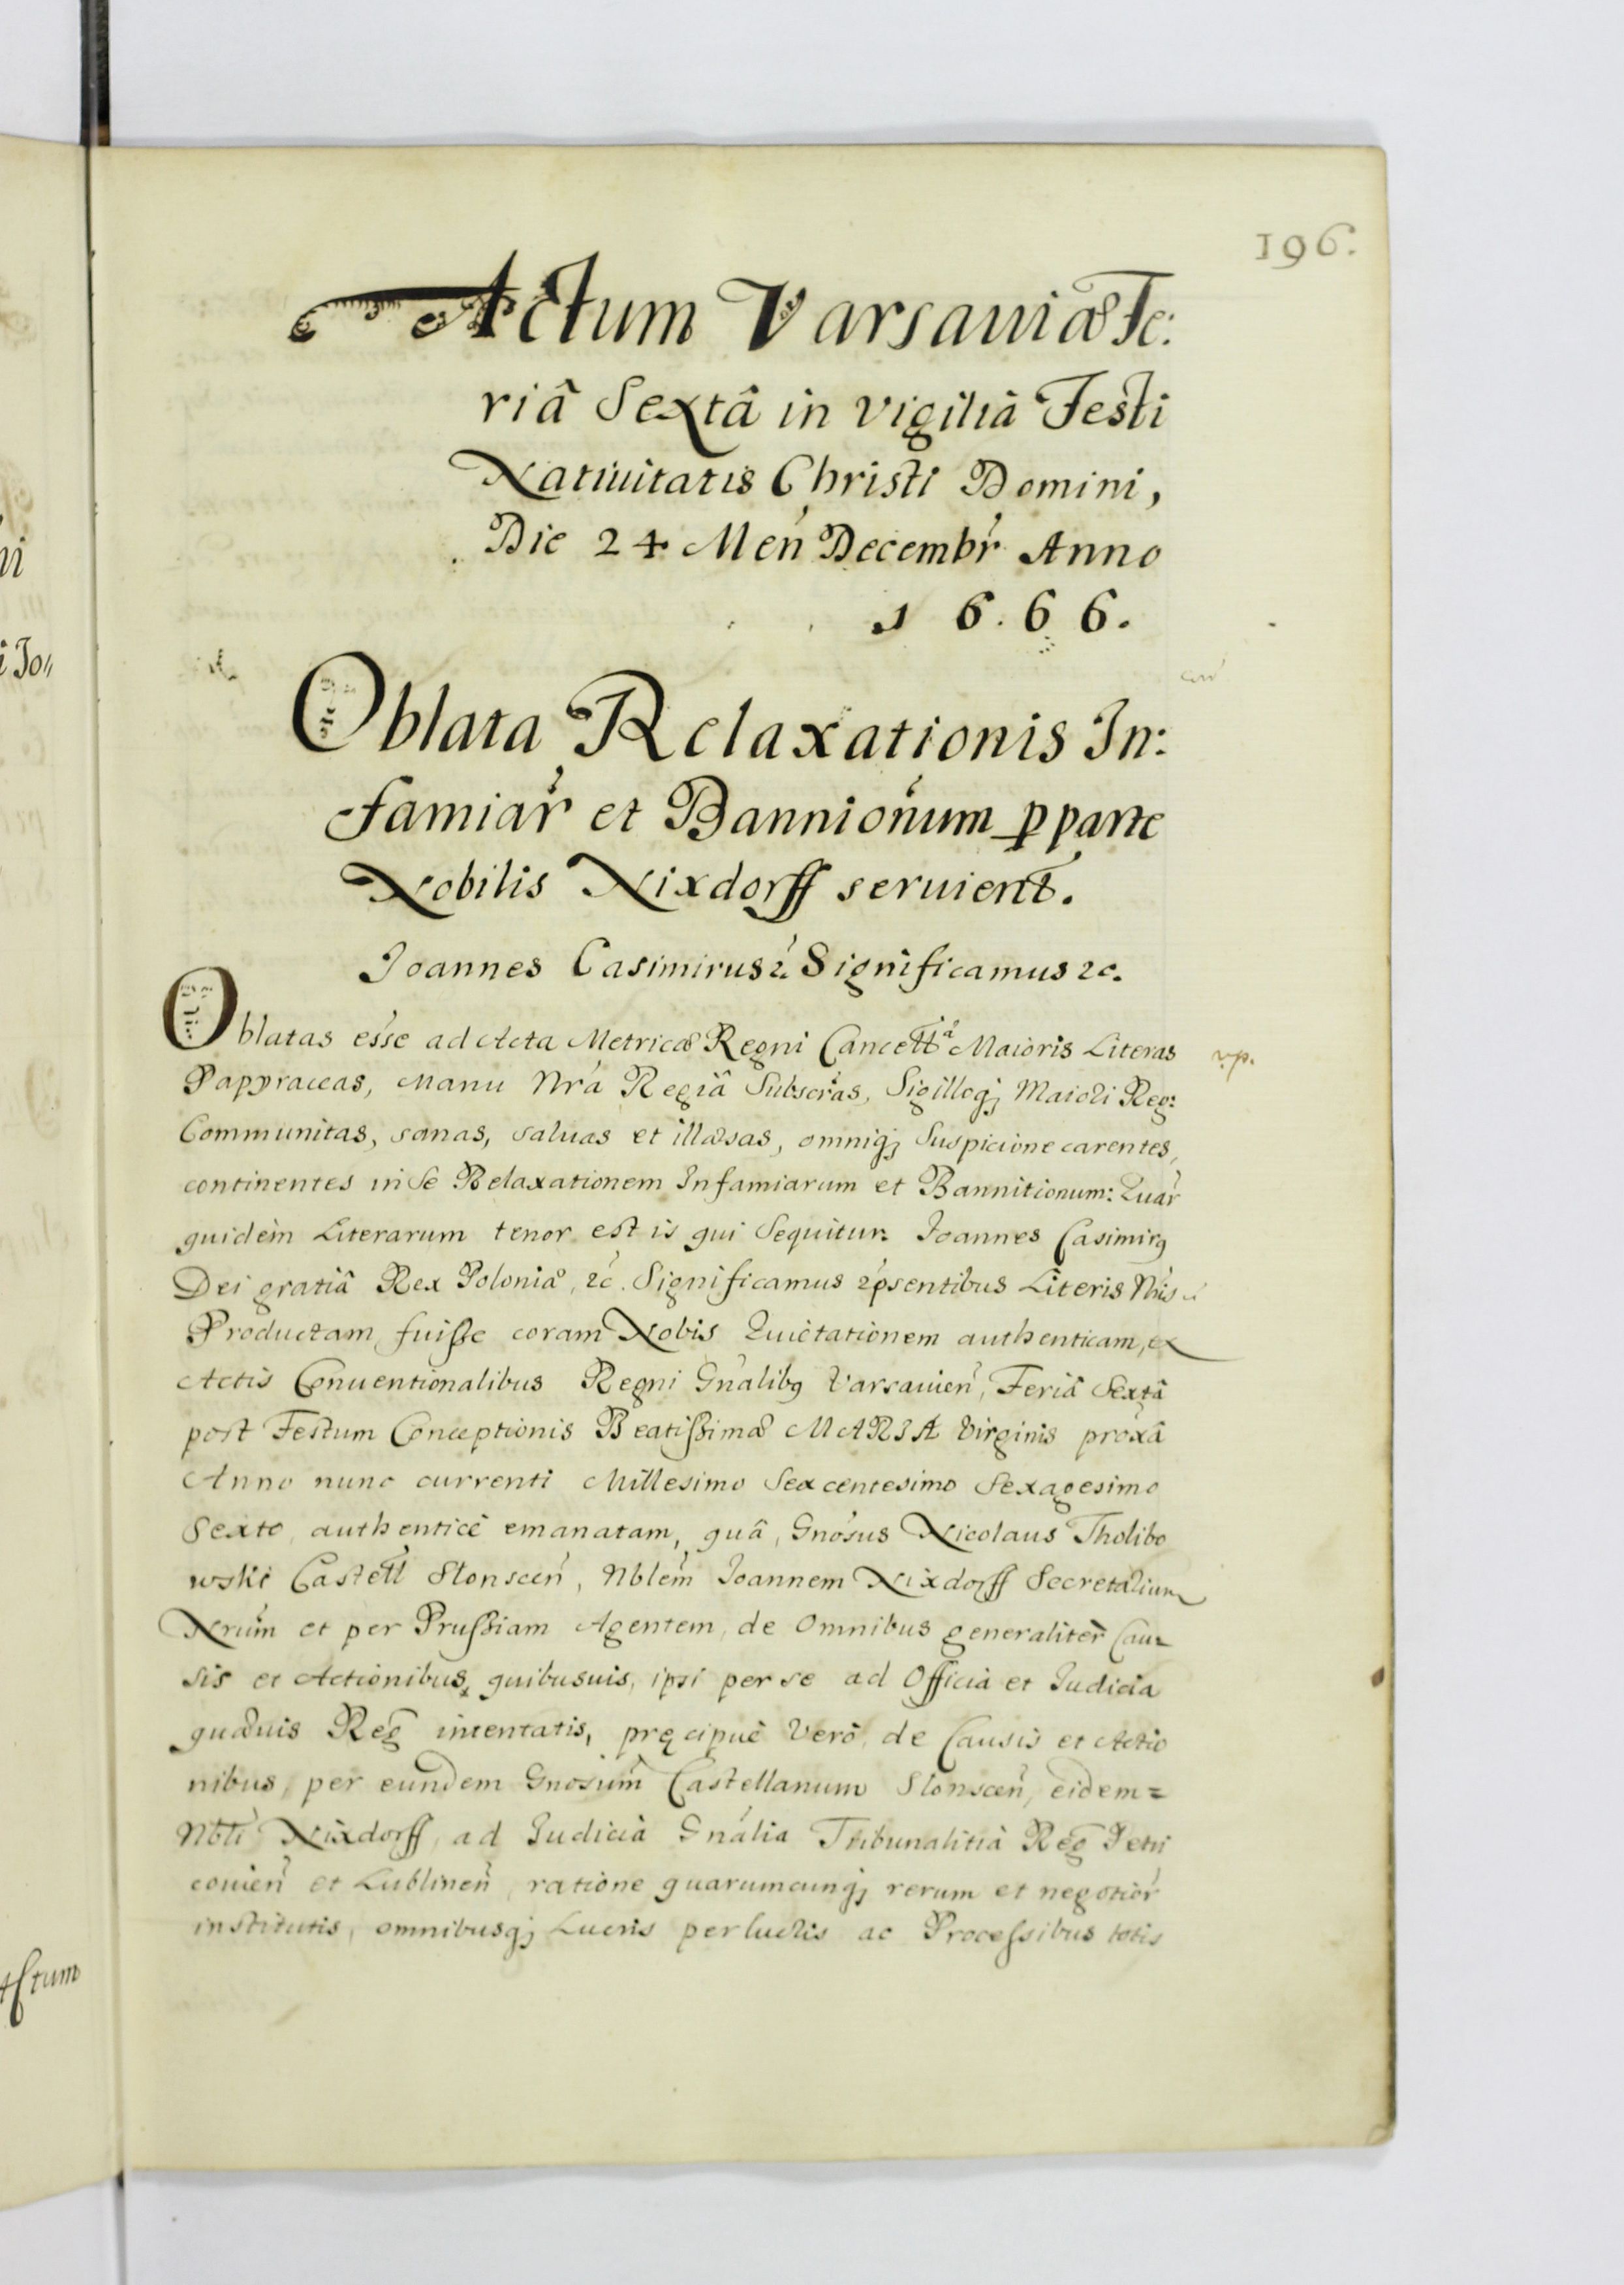 196.
Actum Varsaviæ Fe:
riâ Sextâ in vigiliâ Festi
Natiuitatis Christi Domini,
Die 24 Men̄ Decembr̄ Anno
1 6. 6 6.
Oblata Relaxationis In:
famiar̄ et Bannionum p parte
Nobilis Nixdorff seruient.
Joannes Casimirus &c Significamus &c.
Oblatas esse ad Acta Metricæ Regni Cancellã Maioris Literas
Papyraceas, Manu Nrâ Regiâ Subscras, Sigilloq; Maiori Reg:
Communitas, sanas, saluas et illæsas, omniq; Suspicione carentes,
continentes in Se Relaxationem Infamiarum et Bannitionum: Quar̄
quidem Literarum tenor est is qui Sequitur. Joannes Casimirq
Dei gratiâ Rex Poloniæ, &c. Significamus pr̄sentibus Literis Nr̄is
Productam fuisse coram Nobis Quietationem authenticam, ex
Actis Conuentionalibus Regni Gnālibq Varsauien̄, Feriâ Sextâ
post Festum Conceptionis Beatissimæ MARIÆ Virginis proxâ
Anno nunc currenti Millesimo Sexcentesimo Sexagesimo
Sexto, authenticè emanatam, quâ, Gnosus Nicolaus Tholibo
wski Castell Slonscen̄, Nblem̄ Joannem Nixdorff Secretarium
Nrum̄ et per Prussiam Agentem, de Omnibus generaliter Cau=
sis et Actionibus, quibusuis, ipsi per se ad Officia et Judicia
quæuis Reg̃ intentatis, pręcipuè Verò, de Causis et Actio
nibus, per eundem Gnosum̄ Castellanum Slonscen̄, eidem=
Nbli Nixdorff, ad Judicia Gnālia Tribunalitia Reg̃ Petri
couien̄ et Lublinen̄, ratione quarumcunq; rerum et negotior̄
institutis, omnibusq; Lucris perlucris ac Processibus totis